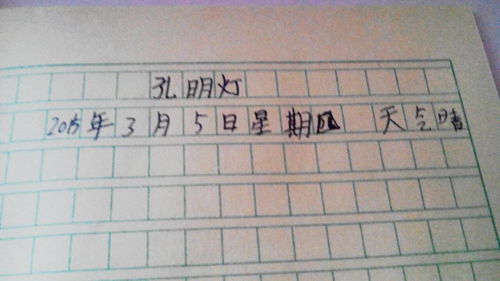 孔明灯
2015年3月5日星期四 天气晴